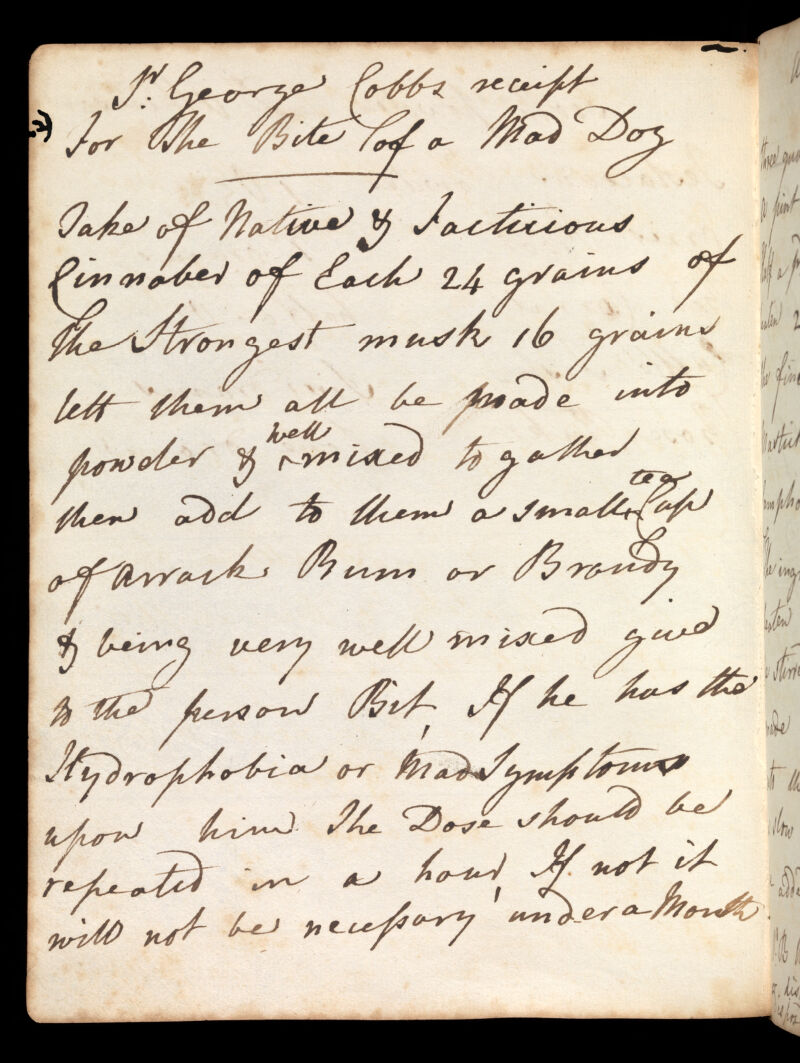 Sr: George Cobbs receipt
For The Bite of a Mad Dog
Take of Native & Factitious
Cinnaber of Each 24 grains of
The Strongest musk 16 grains
lett them all be made into
powder & ^well mixed to gather
then add to them a small ^tea Cup
of Arrack Rum or Brandy
& being very well mixed give
to the person Bit, If he has the
Hydrophobia or Mad Symptoms
upon him The Dose should be
repeated in a hour, If not it
will not be necessary under a Month